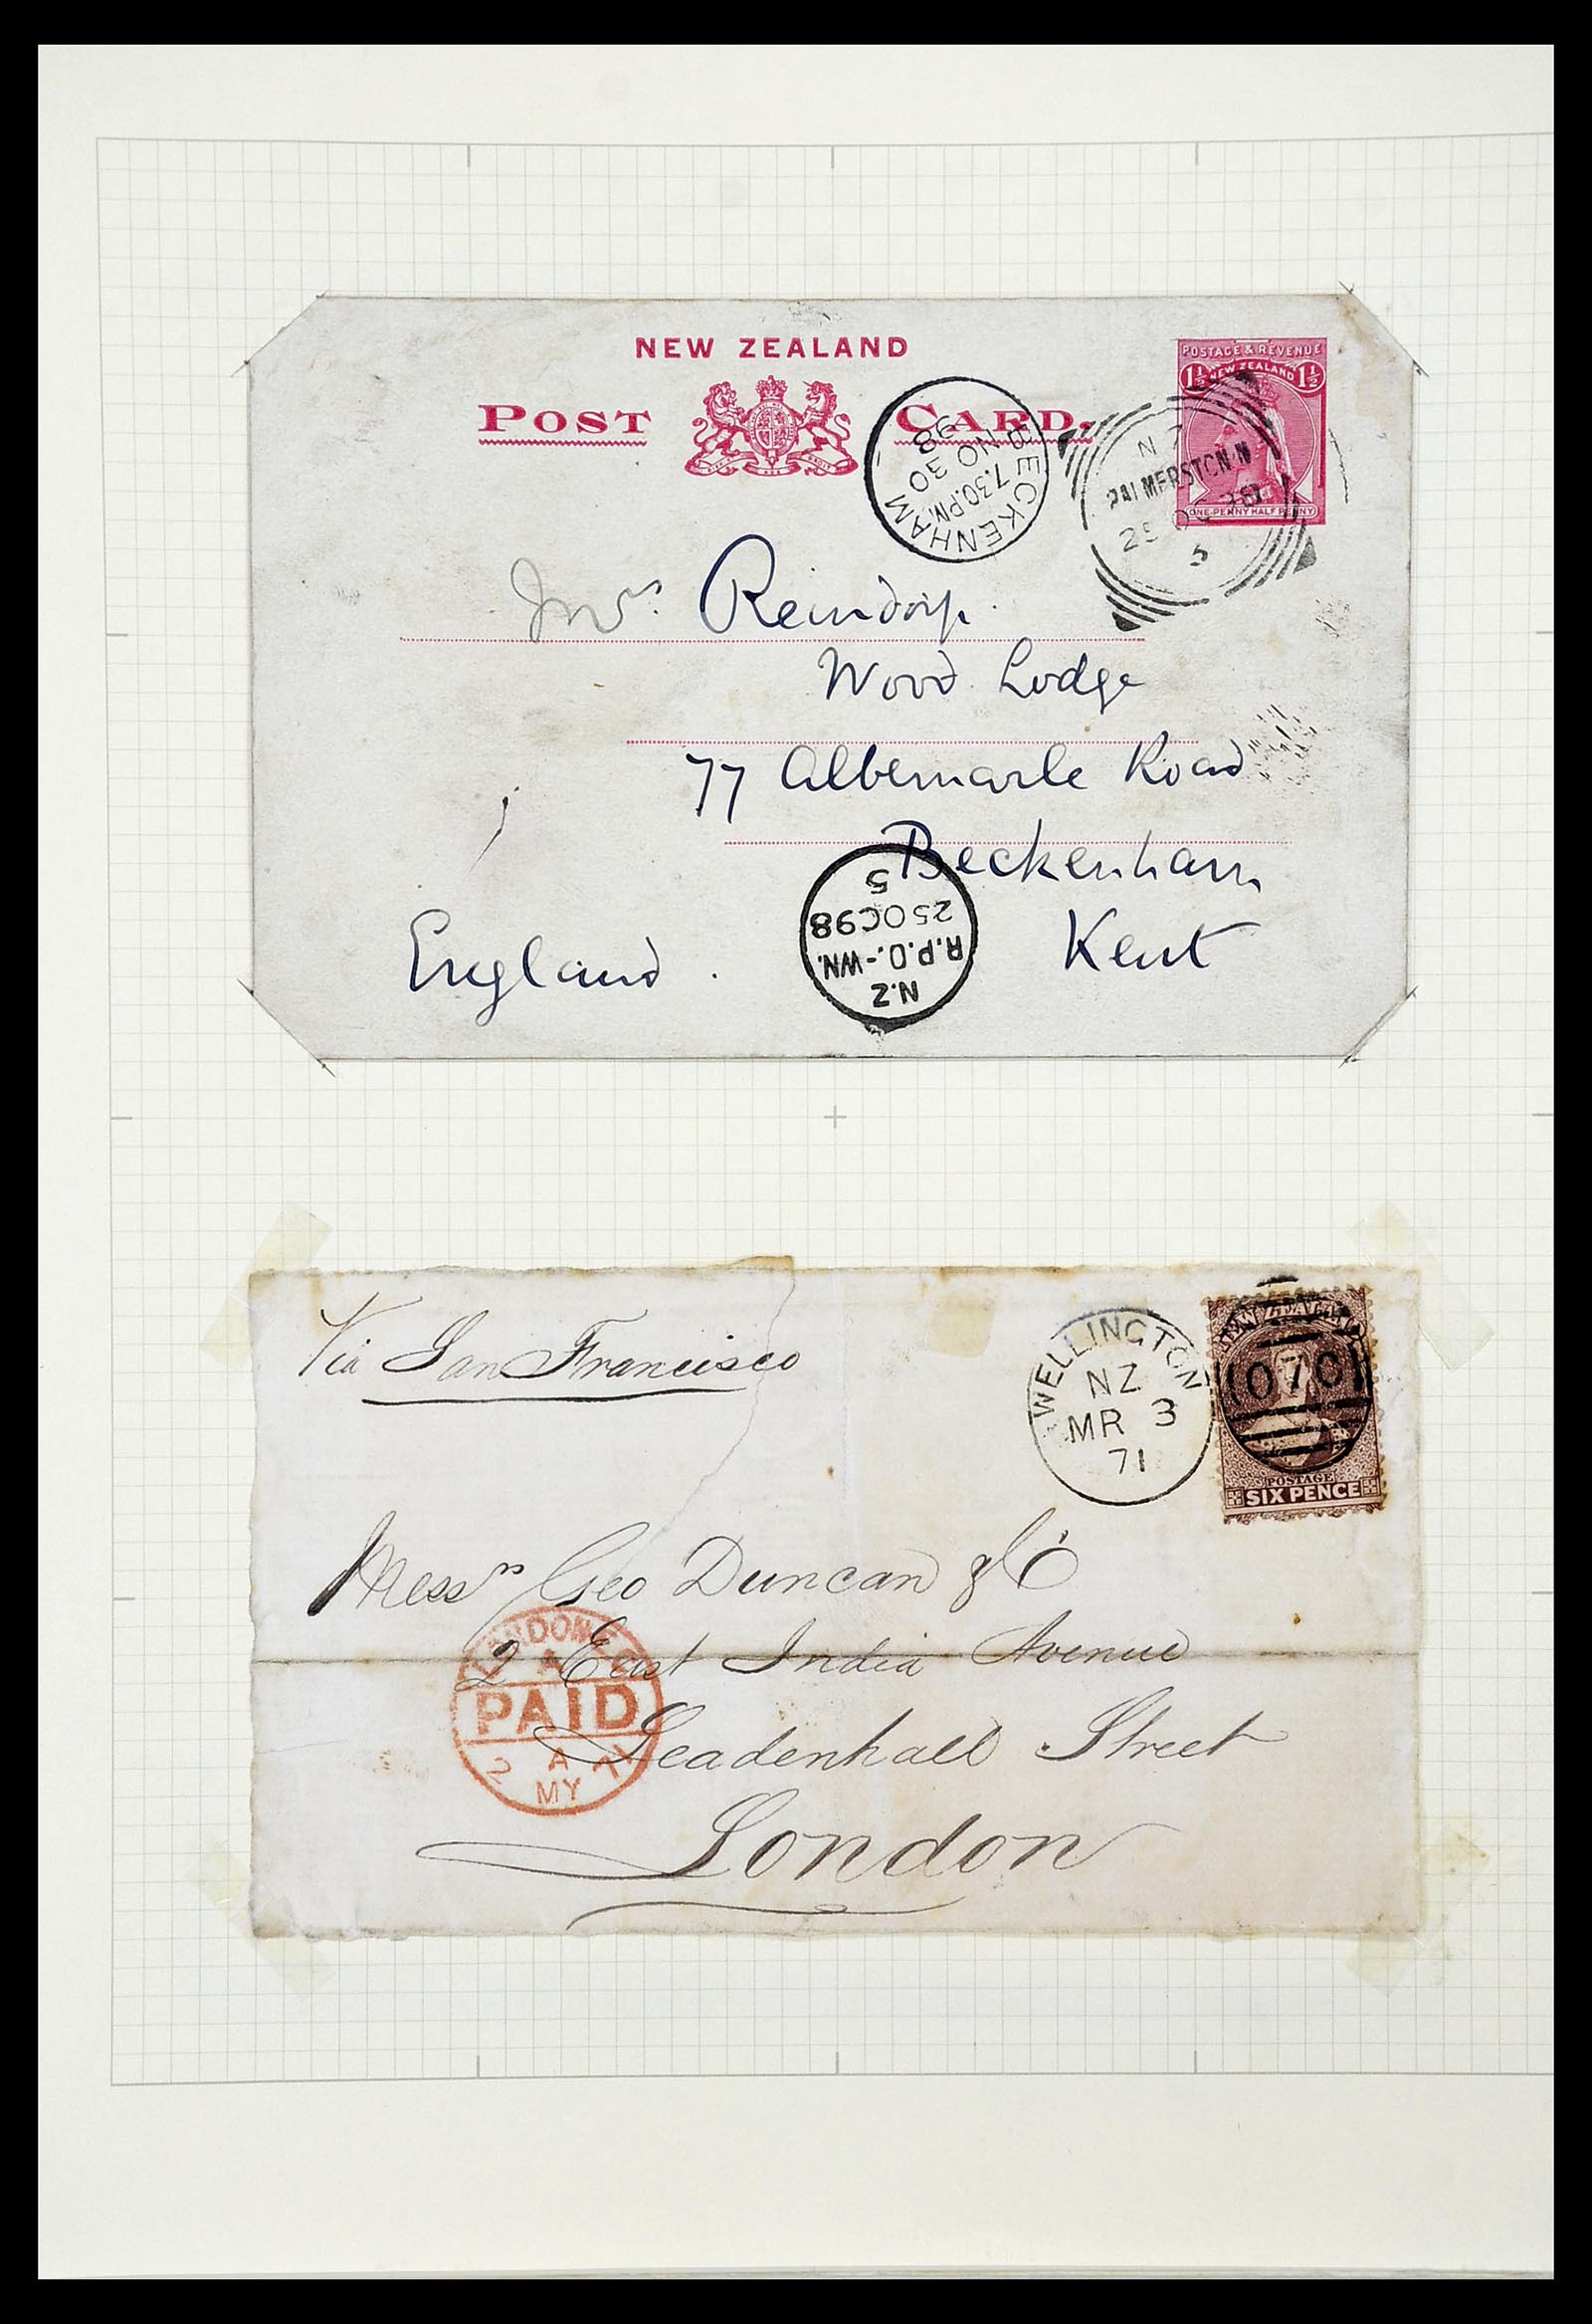 NEW ZEALAND
POST CARD.
POSTAGE & REVENUE
1½ NEW ZEALAND 1½
ONE PENNY HALF PENNY
BECKENHAM
7.30.PM
NO 30
98
N Z
PALMERSTON. N
5
Mrs. Reindorp.
Wood Lodge
77 Albemarle Road
Beckenham
Kent
England.
N.Z
R.P.O.-WN.
25 OC 98
5
Via San Francisco
WELLINGTON
NZ
MR 3
71
070
POSTAGE
SIX PENCE
Messrs Geo Duncan & Co
2 East India Avenue
Leadenhall Street
London
PAID
A
2 MY 71